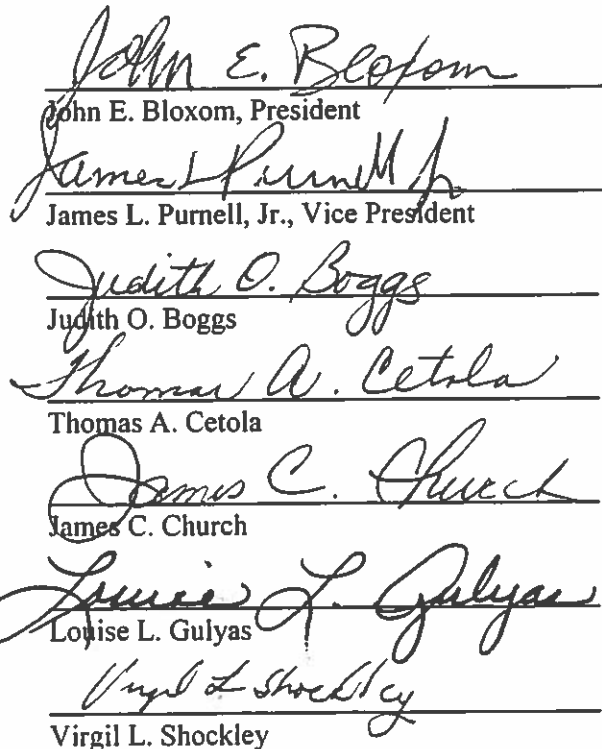 John E. Bloxom
John E. Bloxom, President
James L Purnell Jr
James L. Purnell, Jr., Vice President
Judith O. Boggs
Judith O. Boggs
Thomas A. Cetola
Thomas A. Cetola
James C. Church
James C. Church
Louise L. Gulyas
Louise L. Gulyas
Virgil L Shockley
Virgil L. Shockley